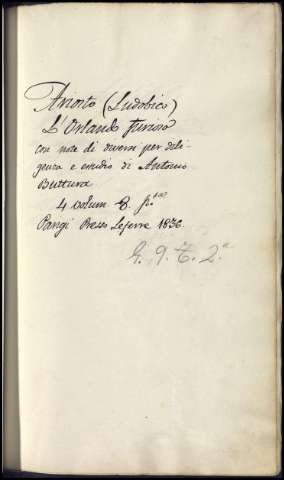 Ariosto (Ludobico)
L'Orlando Furioso
con note di diversi per dili-
genza e studio di Antonio
Buttura
4 volum 8
Parigi Presso Lefevre 1836
G. 9. T. 2.a